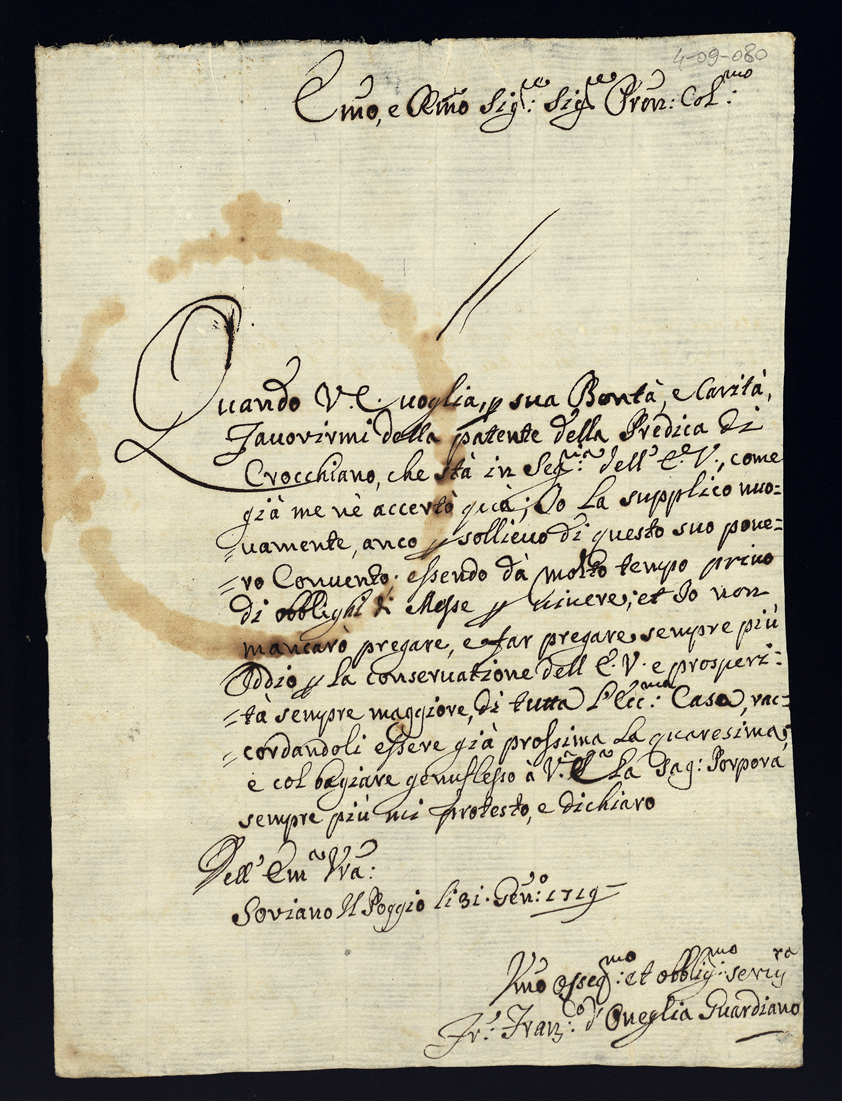 4-09-080
Emo, e Rmo Sig.re: Sig.re Pron: Col:mo
Quando V. E. uoglia, p sua Bontà, e Carità,
Fauorirmi della patente della Predica di
Crocchiano, che stà in Seg.ria dell' E. V., come
già me nè accertò quà; Io La supplico nuo=
=uamente, anco p sollieuo di questo suo poue=
=ro Conuento. essendo dà molto tempo priuo
di obblighi di Messe p uiuere; et Io non
mancarò pregare, e far pregare sempre più
Iddio p La conseruatione dell E. V. e prosperi=
=tà sempre maggiore, di tutta L'Ecc:ma Casa, rac=
=cordandoli essere già prossima La quaresima;
e col bagiare genuflesso à V.a E.a La Sag: Porpora
sempre più mi protesto, e dichiaro
Dell' Em.a Vra:
Soviano Il Poggio li 31. Gen:o 1719
Vmo osseq:mo et obblig:mo seru
Fr: Fran:co d' Oneglia Guardiano